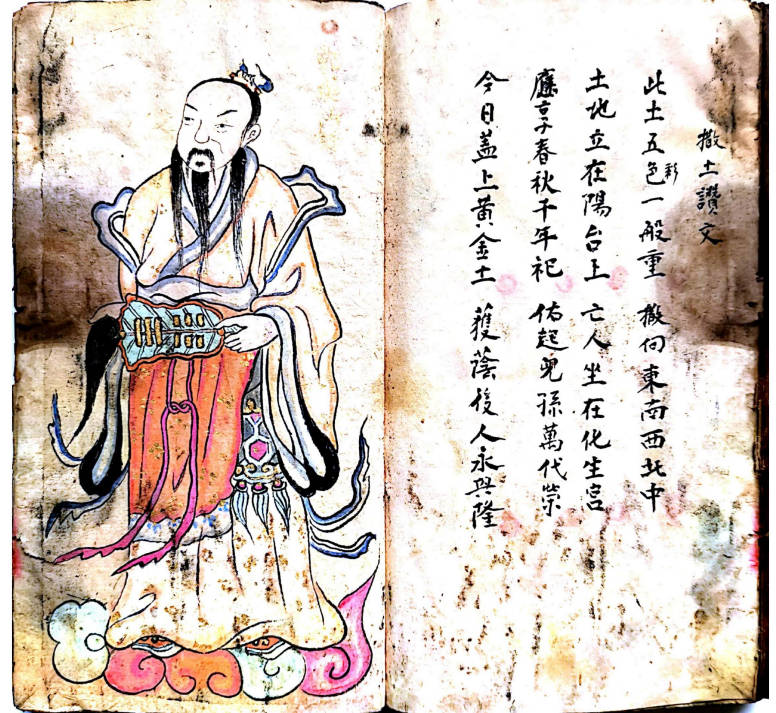 撒土讚文
此土五色彩一般重 撒向東南西北中
土地立在陽台上 亡人坐在化生宮
應享春秋千年祀 佑起兒孫萬代榮
今日蓋上黃金土 獲蔭後人永興隆